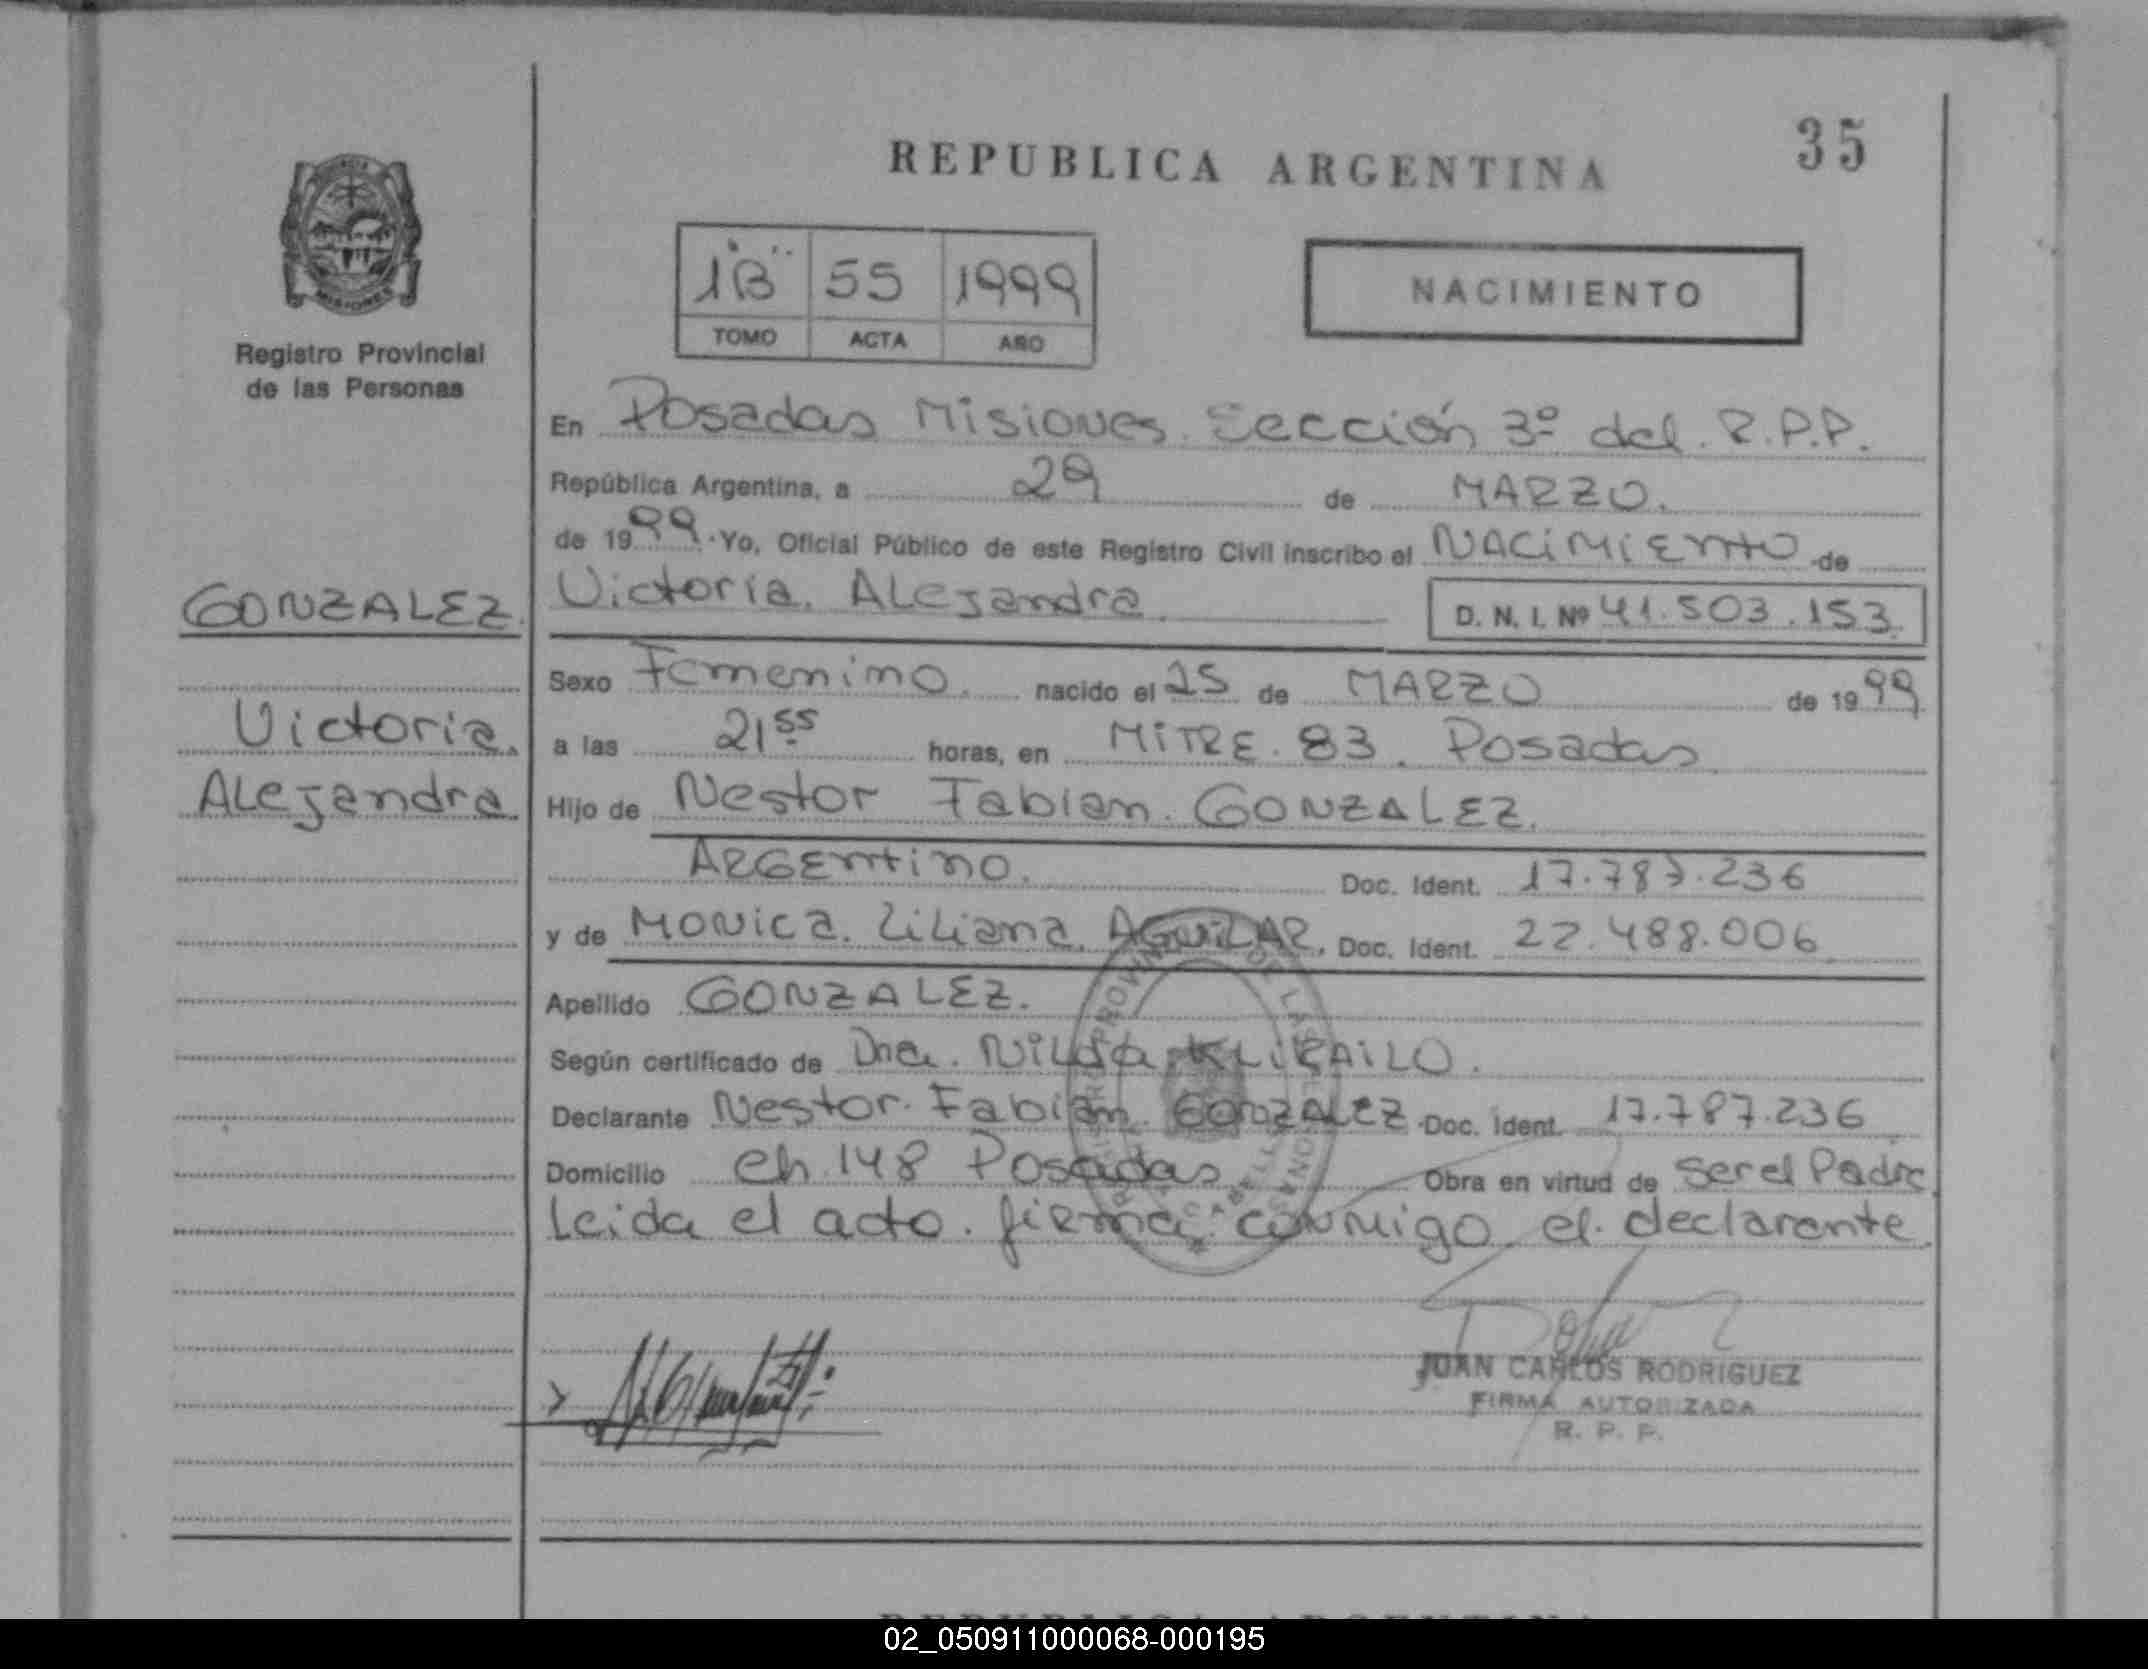 REPUBLICA ARGENTINA
35
Registro Provincial
de las Personas
1"B" 55 1999
TOMO ACTA AÑO
NACIMIENTO
En Posadas Misiones. Sección 3º del. R.P.P.
República Argentina, a 29 de MARZO.
de 1999. Yo, Oficial Público de este Registro Civil inscribo el NACIMIENTO de
Victoria. ALEJandra
D. N. I. Nº 41.503.153
GONZALEZ.
Victoria.
ALEJandra
Sexo Femenino. nacido el 25 de MARZO de 1999
a las 21 55 horas, en MITRE. 83. Posadas
Hijo de Nestor Fabian. GONZALEZ.
ARGENTINO. Doc. Ident. 17.787.236
y de MONICA. Liliana. AGUILAR, Doc. Ident. 22.488.006
Apellido GONZALEZ.
Según certificado de Dra. Nilda
Declarante Nestor. Fabian. GONZALEZ Doc. Ident. 17.787.236
Domicilio ch. 148 Posadas Obra en virtud de Ser el Padre.
Leida el acto. firma. conmigo el. declarante
JUAN CARLOS RODRIGUEZ
FIRMA AUTORIZADA
R. P. P.
02_050911000068-000195